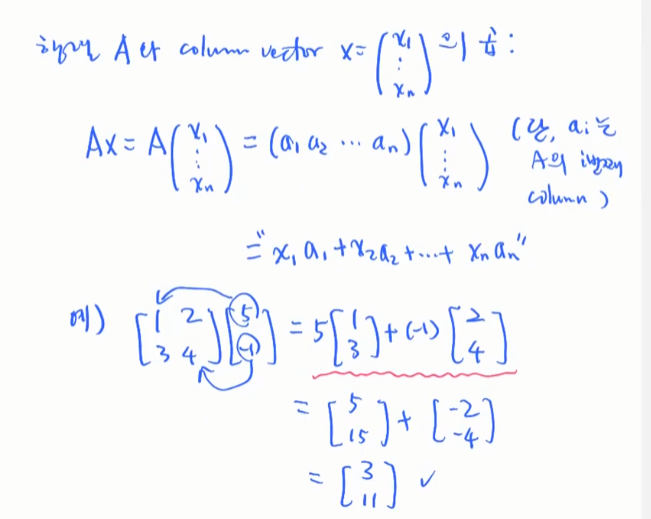 행렬 A 와 column vector x = (x₁ ⋮ xₙ) 의 곱 :
Ax = A(x₁ ⋮ xₙ) = (a₁ a₂ ⋯ aₙ)(x₁ ⋮ xₙ) (단, aᵢ는
A의 i번째
column)
= "x₁a₁ + x₂a₂ + ⋯ + xₙaₙ"
예) [1 2 3 4][5 -1] = 5[1 3] + (-1)[2 4]
= [5 15] + [-2 -4]
= [3 11] ✓